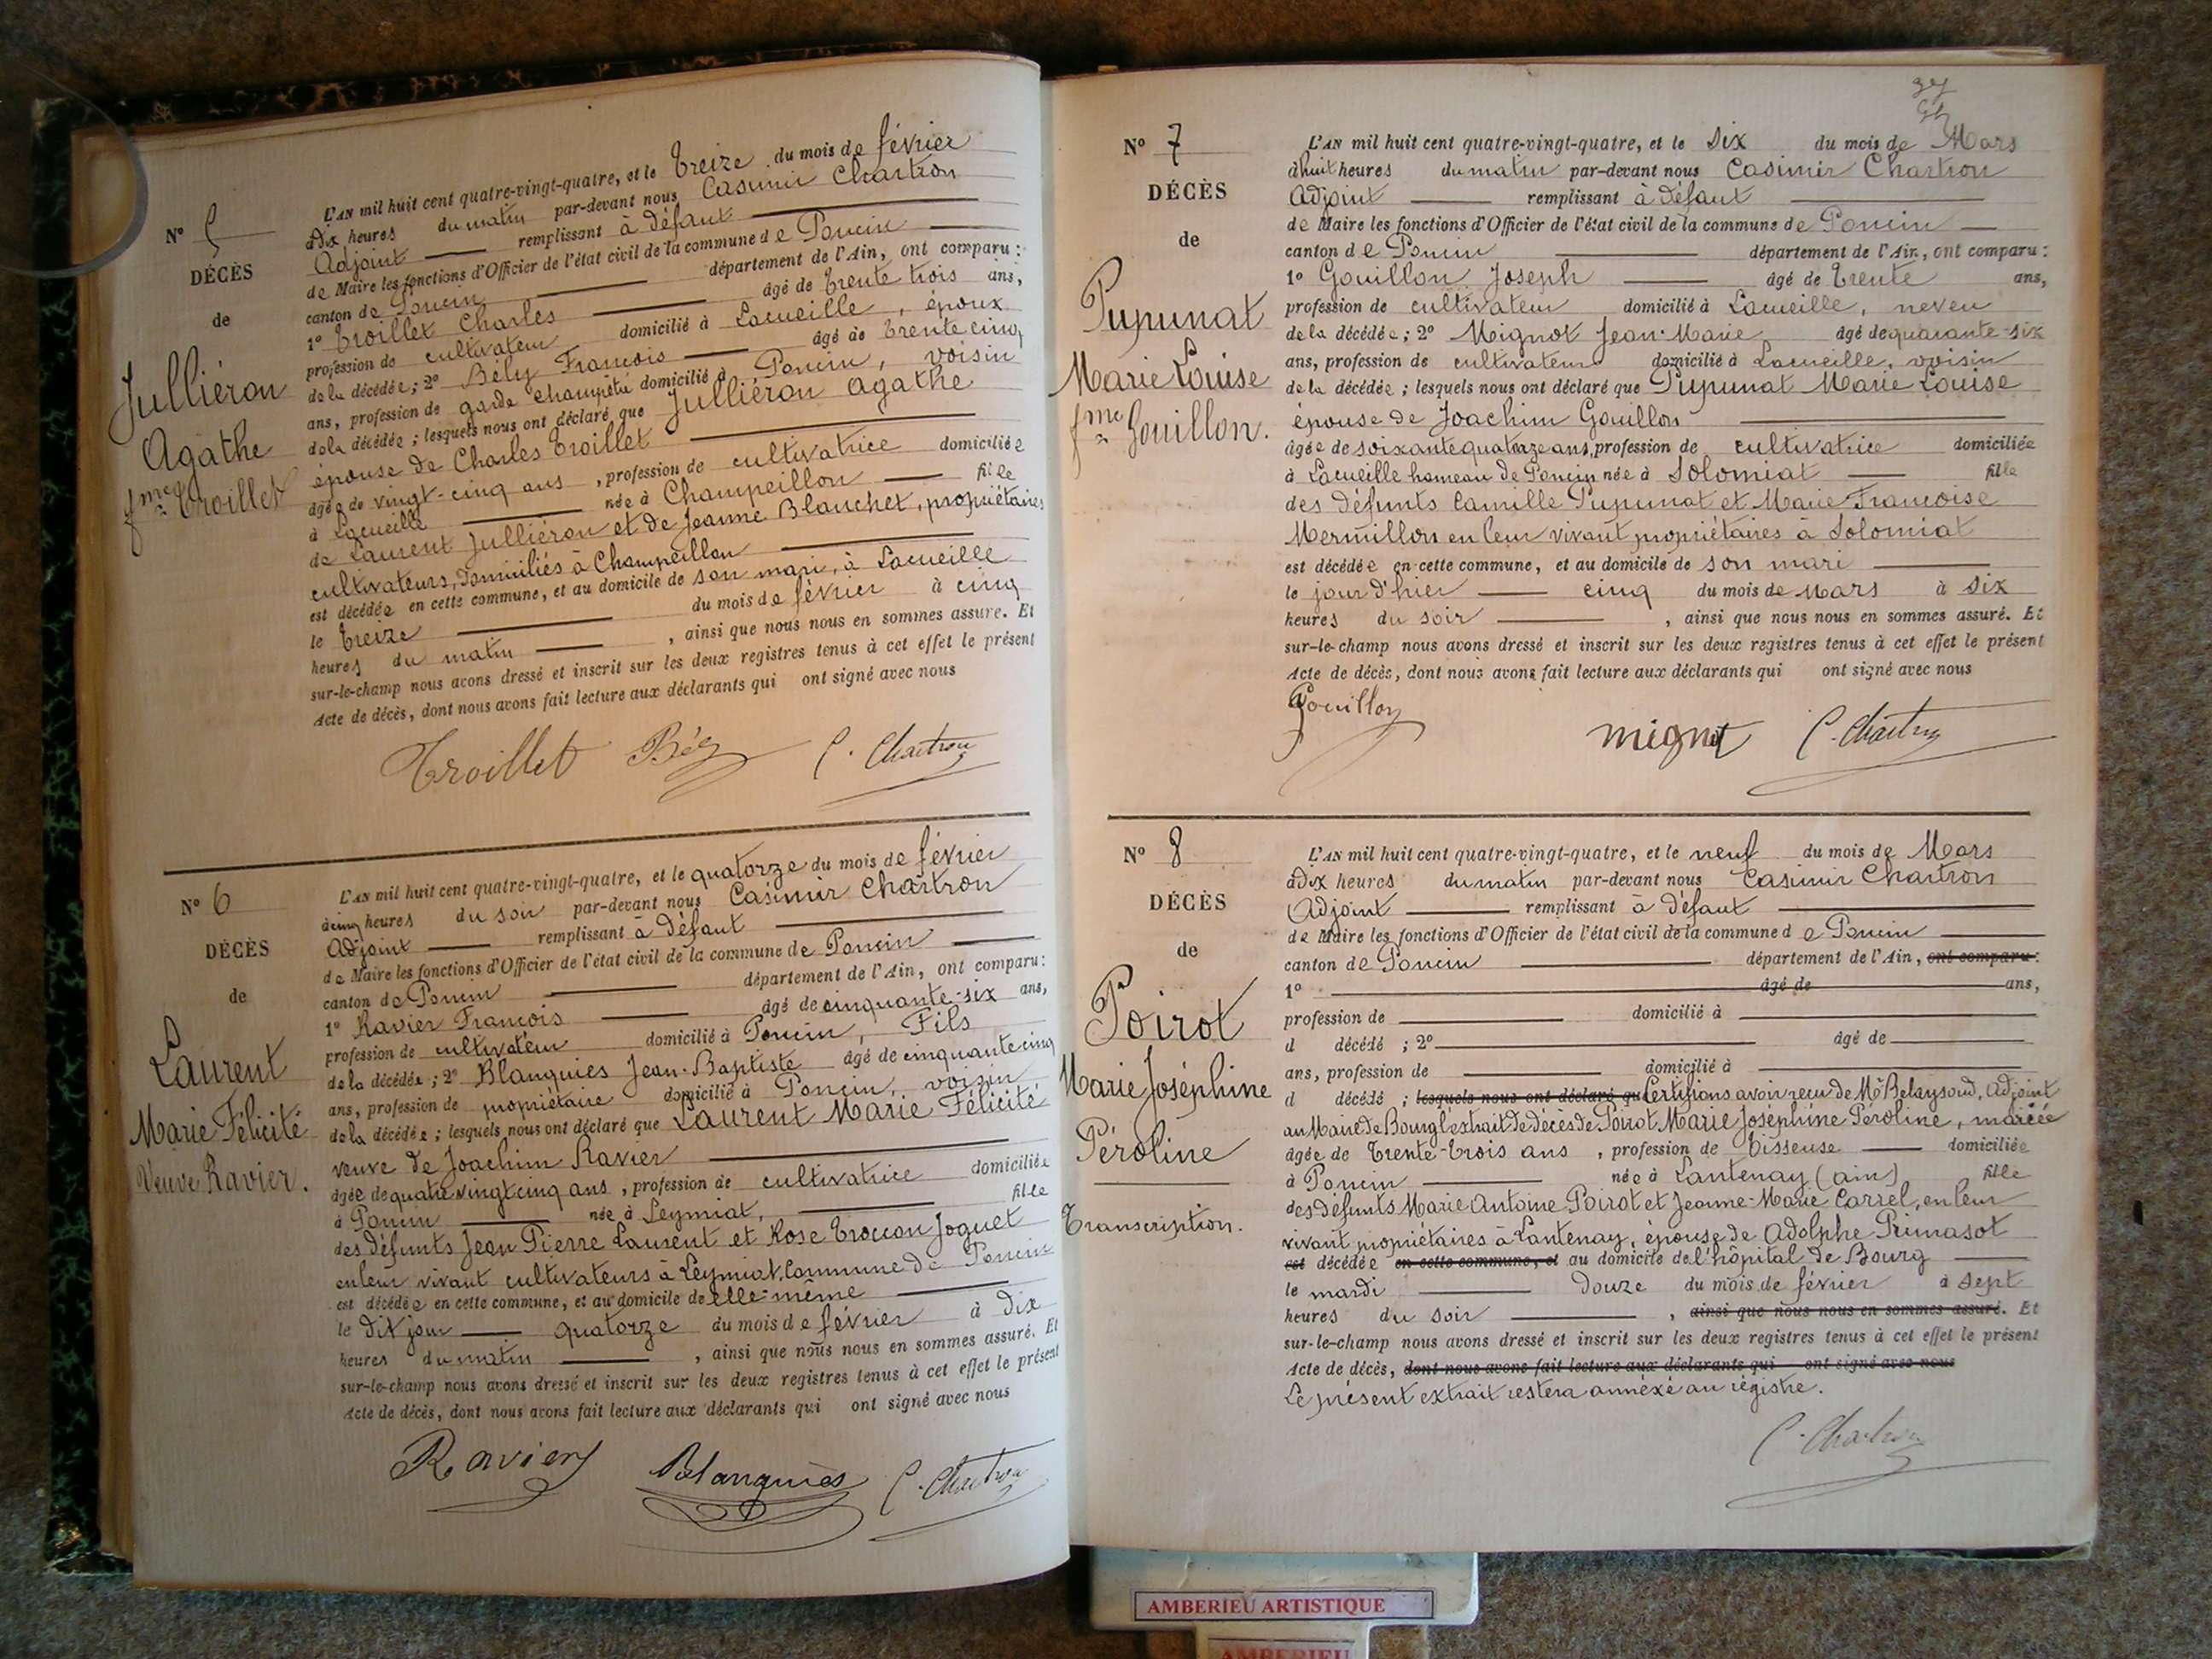 Nº 5
DÉCÈS
de
Julliéron
Agathe
fme Troillet
L'AN mil huit cent quatre-vingt-quatre, et le treize du mois de février
à dix heures du matin par-devant nous Casimir Chartron
Adjoint remplissant à défaut
de Maire les fonctions d'Officier de l'état civil de la commune de Poncin
canton de Poncin département de l'Ain, ont comparu :
1º Troillet Charles âgé de trente trois ans,
profession de cultivateur domicilié à Lacueille, époux
de la décédée ; 2º Bély François âgé de trente cinq
ans, profession de garde champêtre domicilié à Poncin, voisin
de la décédée ; lesquels nous ont déclaré que Julliéron Agathe
épouse de Charles Troillet
âgée de vingt-cinq ans, profession de cultivatrice domiciliée
à Lacueille née à Champeillon fille
de Laurent Julliéron et de Jeanne Blanchet, propriétaires
cultivateurs, domiciliés à Champeillon
est décédée en cette commune, et au domicile de son mari, à Lacueille
le treize du mois de février à cinq
heures du matin , ainsi que nous nous en sommes assuré. Et
sur-le-champ nous avons dressé et inscrit sur les deux registres tenus à cet effet le présent
Acte de décès, dont nous avons fait lecture aux déclarants qui ont signé avec nous
Troillet Bély C. Chartron
Nº 6
DÉCÈS
de
Laurent
Marie Félicité
Veuve Ravier.
L'AN mil huit cent quatre-vingt-quatre, et le quatorze du mois de février
à cinq heures du soir par-devant nous Casimir Chartron
Adjoint remplissant à défaut
de Maire les fonctions d'Officier de l'état civil de la commune de Poncin
canton de Poncin département de l'Ain, ont comparu :
1º Ravier François âgé de cinquante-six ans,
profession de cultivateur domicilié à Poncin, Fils
de la décédée ; 2º Blanquies Jean-Baptiste âgé de cinquante cinq
ans, profession de propriétaire domicilié à Poncin, voisin
de la décédée ; lesquels nous ont déclaré que Laurent Marie Félicité
veuve de Joachim Ravier
âgée de quatre vingt cinq ans, profession de cultivatrice domiciliée
à Poncin née à Leymiat, fille
des défunts Jean Pierre Laurent et Rose Troccon Joguet
en leur vivant cultivateurs à Leymiat, Commune de Poncin
est décédée en cette commune, et au domicile de elle-même
le dit jour quatorze du mois de février à dix
heures du matin , ainsi que nous nous en sommes assuré. Et
sur-le-champ nous avons dressé et inscrit sur les deux registres tenus à cet effet le présent
Acte de décès, dont nous avons fait lecture aux déclarants qui ont signé avec nous
Ravier Blanquies C. Chartron
37
Nº 7
DÉCÈS
de
Pupunat
Marie Louise
fme Gouillon.
L'AN mil huit cent quatre-vingt-quatre, et le six du mois de Mars
à huit heures du matin par-devant nous Casimir Chartron
Adjoint remplissant à défaut
de Maire les fonctions d'Officier de l'état civil de la commune de Poncin
canton de Poncin département de l'Ain, ont comparu :
1º Gouillon Joseph âgé de trente ans,
profession de cultivateur domicilié à Lacueille, neveu
de la décédée ; 2º Mignot Jean-Marie âgé de quarante-six
ans, profession de cultivateur domicilié à Lacueille, voisin
de la décédée ; lesquels nous ont déclaré que Pupunat Marie Louise
épouse de Joachim Gouillon
âgée de soixante quatorze ans, profession de cultivatrice domiciliée
à Lacueille hameau de Poncin née à Solomiat fille
des défunts Camille Pupunat et Marie Françoise
Mermillon en leur vivant propriétaires à Solomiat
est décédée en cette commune, et au domicile de son mari
le jour d'hier cinq du mois de Mars à six
heures du soir , ainsi que nous nous en sommes assuré. Et
sur-le-champ nous avons dressé et inscrit sur les deux registres tenus à cet effet le présent
Acte de décès, dont nous avons fait lecture aux déclarants qui ont signé avec nous
Gouillon mignot C. Chartron
Nº 8
DÉCÈS
de
Poirot
Marie Joséphine
Péroline
Transcription.
L'AN mil huit cent quatre-vingt-quatre, et le neuf du mois de Mars
à dix heures du matin par-devant nous Casimir Chartron
Adjoint remplissant à défaut
de Maire les fonctions d'Officier de l'état civil de la commune de Poncin
canton de Poncin département de l'Ain, ont comparu :
1º âgé de ans,
profession de domicilié à
d décédé ; 2º âgé de
ans, profession de domicilié à
d décédé ; lesquels nous ont déclaré qu Certifions avoir reçu de Mr Belaysoud, Adjoint
au Maire de Bourg l'extrait de décès de Poirot Marie Joséphine Péroline, mariée
âgée de trente-trois ans, profession de tisseuse domiciliée
à Poncin née à Lantenay (ain) fille
des défunts Marie Antoine Poirot et Jeanne-Marie Carrel, en leur
vivant propriétaires à Lantenay, épouse de Adolphe Primasot
est décédée en cette commune, et au domicile de l'hôpital de Bourg
le mardi douze du mois de février à sept
heures du soir , ainsi que nous nous en sommes assuré. Et
sur-le-champ nous avons dressé et inscrit sur les deux registres tenus à cet effet le présent
Acte de décès, dont nous avons fait lecture aux déclarants qui ont signé avec nous
Le présent extrait restera annéxé au régistre.
C. Chartron
AMBERIEU ARTISTIQUE
AMBERIEU